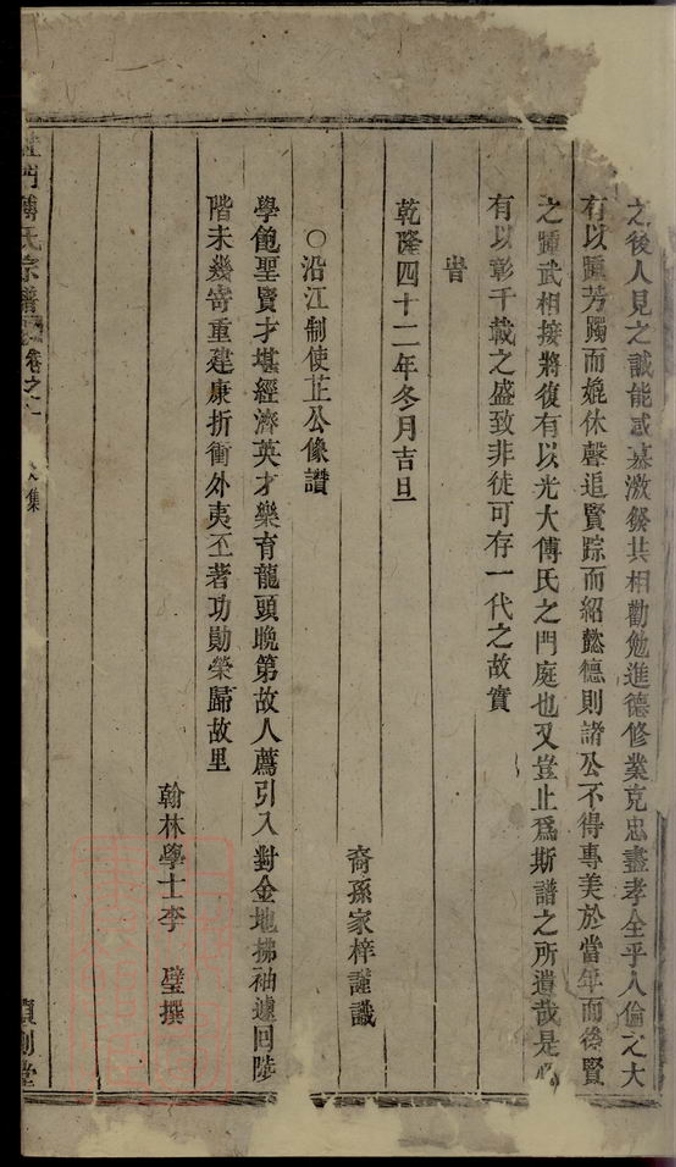 之後人見之誠能感慕激發共相勸勉進德修業克忠盡孝全乎人倫之大
有以踵芳躅而媲休聲追賢踪而紹懿德則諸公不得專美於當年而後賢
之踵武相接將復有以光大傅氏之門庭也又豈止爲斯譜之所遺哉是
有以彰千載之盛致非徒可存一代之故實
旹
乾隆四十二年冬月吉旦
裔孫家梓謹識
○沿江制使芷公像讚
學飽聖賢才堪經濟英才樂育龍頭晚第故人薦引入對金地拂袖遽回陟
階未幾寄重建康折衝外夷丕著功勛榮歸故里
翰林學士李 璧撰
門傅氏宗譜 卷之 集